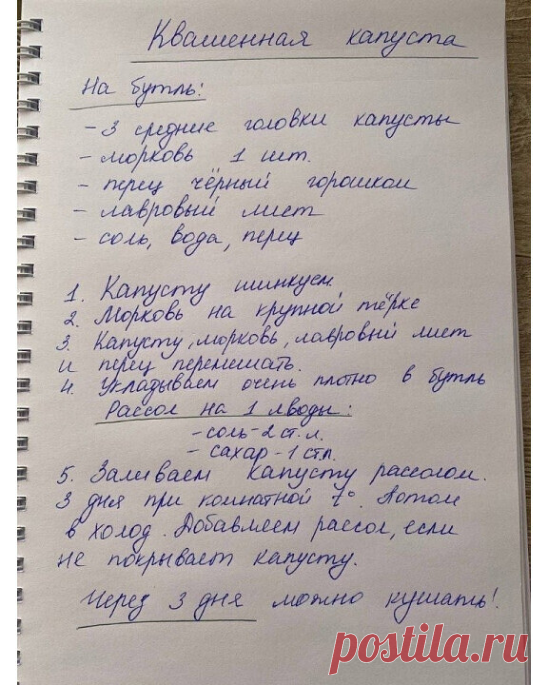 Квашенная капуста
На бутль:
- 3 средние головки капусты
- морковь 1 шт.
- перец чёрный горошком
- лавровый лист
- соль, вода, перец
1. Капусту шинкуем.
2. Морковь на крупной тёрке
3. Капусту, морковь, лавровый лист
и перец перемешать.
4. Укладываем очень плотно в бутль
Рассол на 1 л воды:
- соль - 2 ст. л.
- сахар - 1 ст л.
5. Заливаем капусту рассолом.
3 дня при комнатной t°. Потом
в холод. Добавляем рассол, если
не покрывает капусту.
Через 3 дня можно кушать!
postila.ru